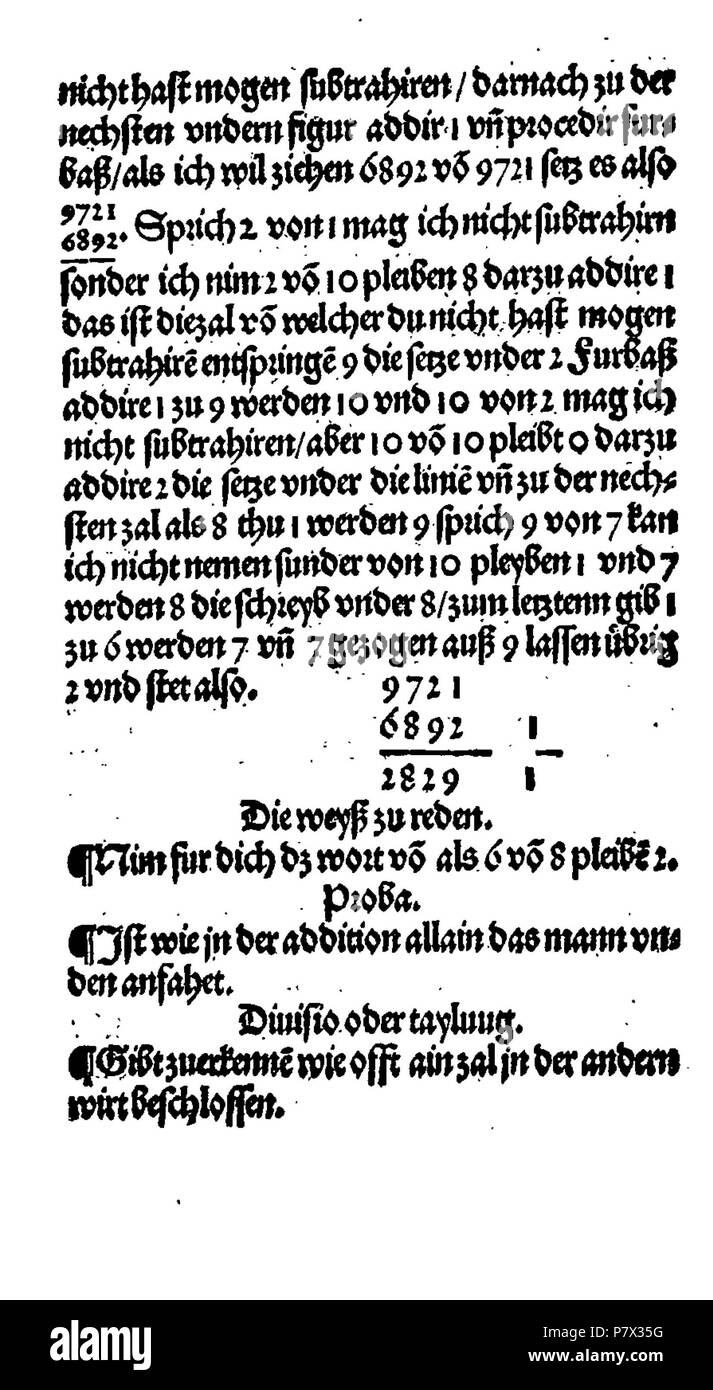 nicht hast mogen subtrahiren / darnach zu der
nechsten vndern figur addir 1 vñ procedir fur-
baß / als ich wil ziehen 6892 võ 9721 setz es also
9721
6892. Sprich 2 von 1 mag ich nicht subtrahirn
sonder ich nim 2 võ 10 pleiben 8 darzu addire 1
das ist die zal võ welcher du nicht hast mogen
subtrahirē entspringē 9 die setze vnder 2 Furbaß
addire 1 zu 9 werden 10 vnd 10 von 2 mag ich
nicht subtrahiren / aber 10 võ 10 pleibt 0 darzu
addire 2 die setze vnder die liniē vñ zu der nech-
sten zal als 8 thu 1 werden 9 sprich 9 von 7 kan
ich nicht nemen sunder von 10 pleyben 1 vnd 7
werden 8 die schreyb vnder 8 / zum letztenn gib 1
zu 6 werden 7 vñ 7 gezogen auß 9 lassen übrig
2 vnd stet also. 9721
6892 1
2829 1
Die weyß zu reden.
¶ Nim fur dich dz wort võ als 6 võ 8 pleibē 2.
Proba.
¶ Ist wie jn der addition allain das mann vn-
den anfahet.
Diuisio oder taylung.
¶ Gibt zuerkennē wie offt ain zal jn der andern
wirt beschlossen.
alamy
Image ID: P7X35G
www.alamy.com